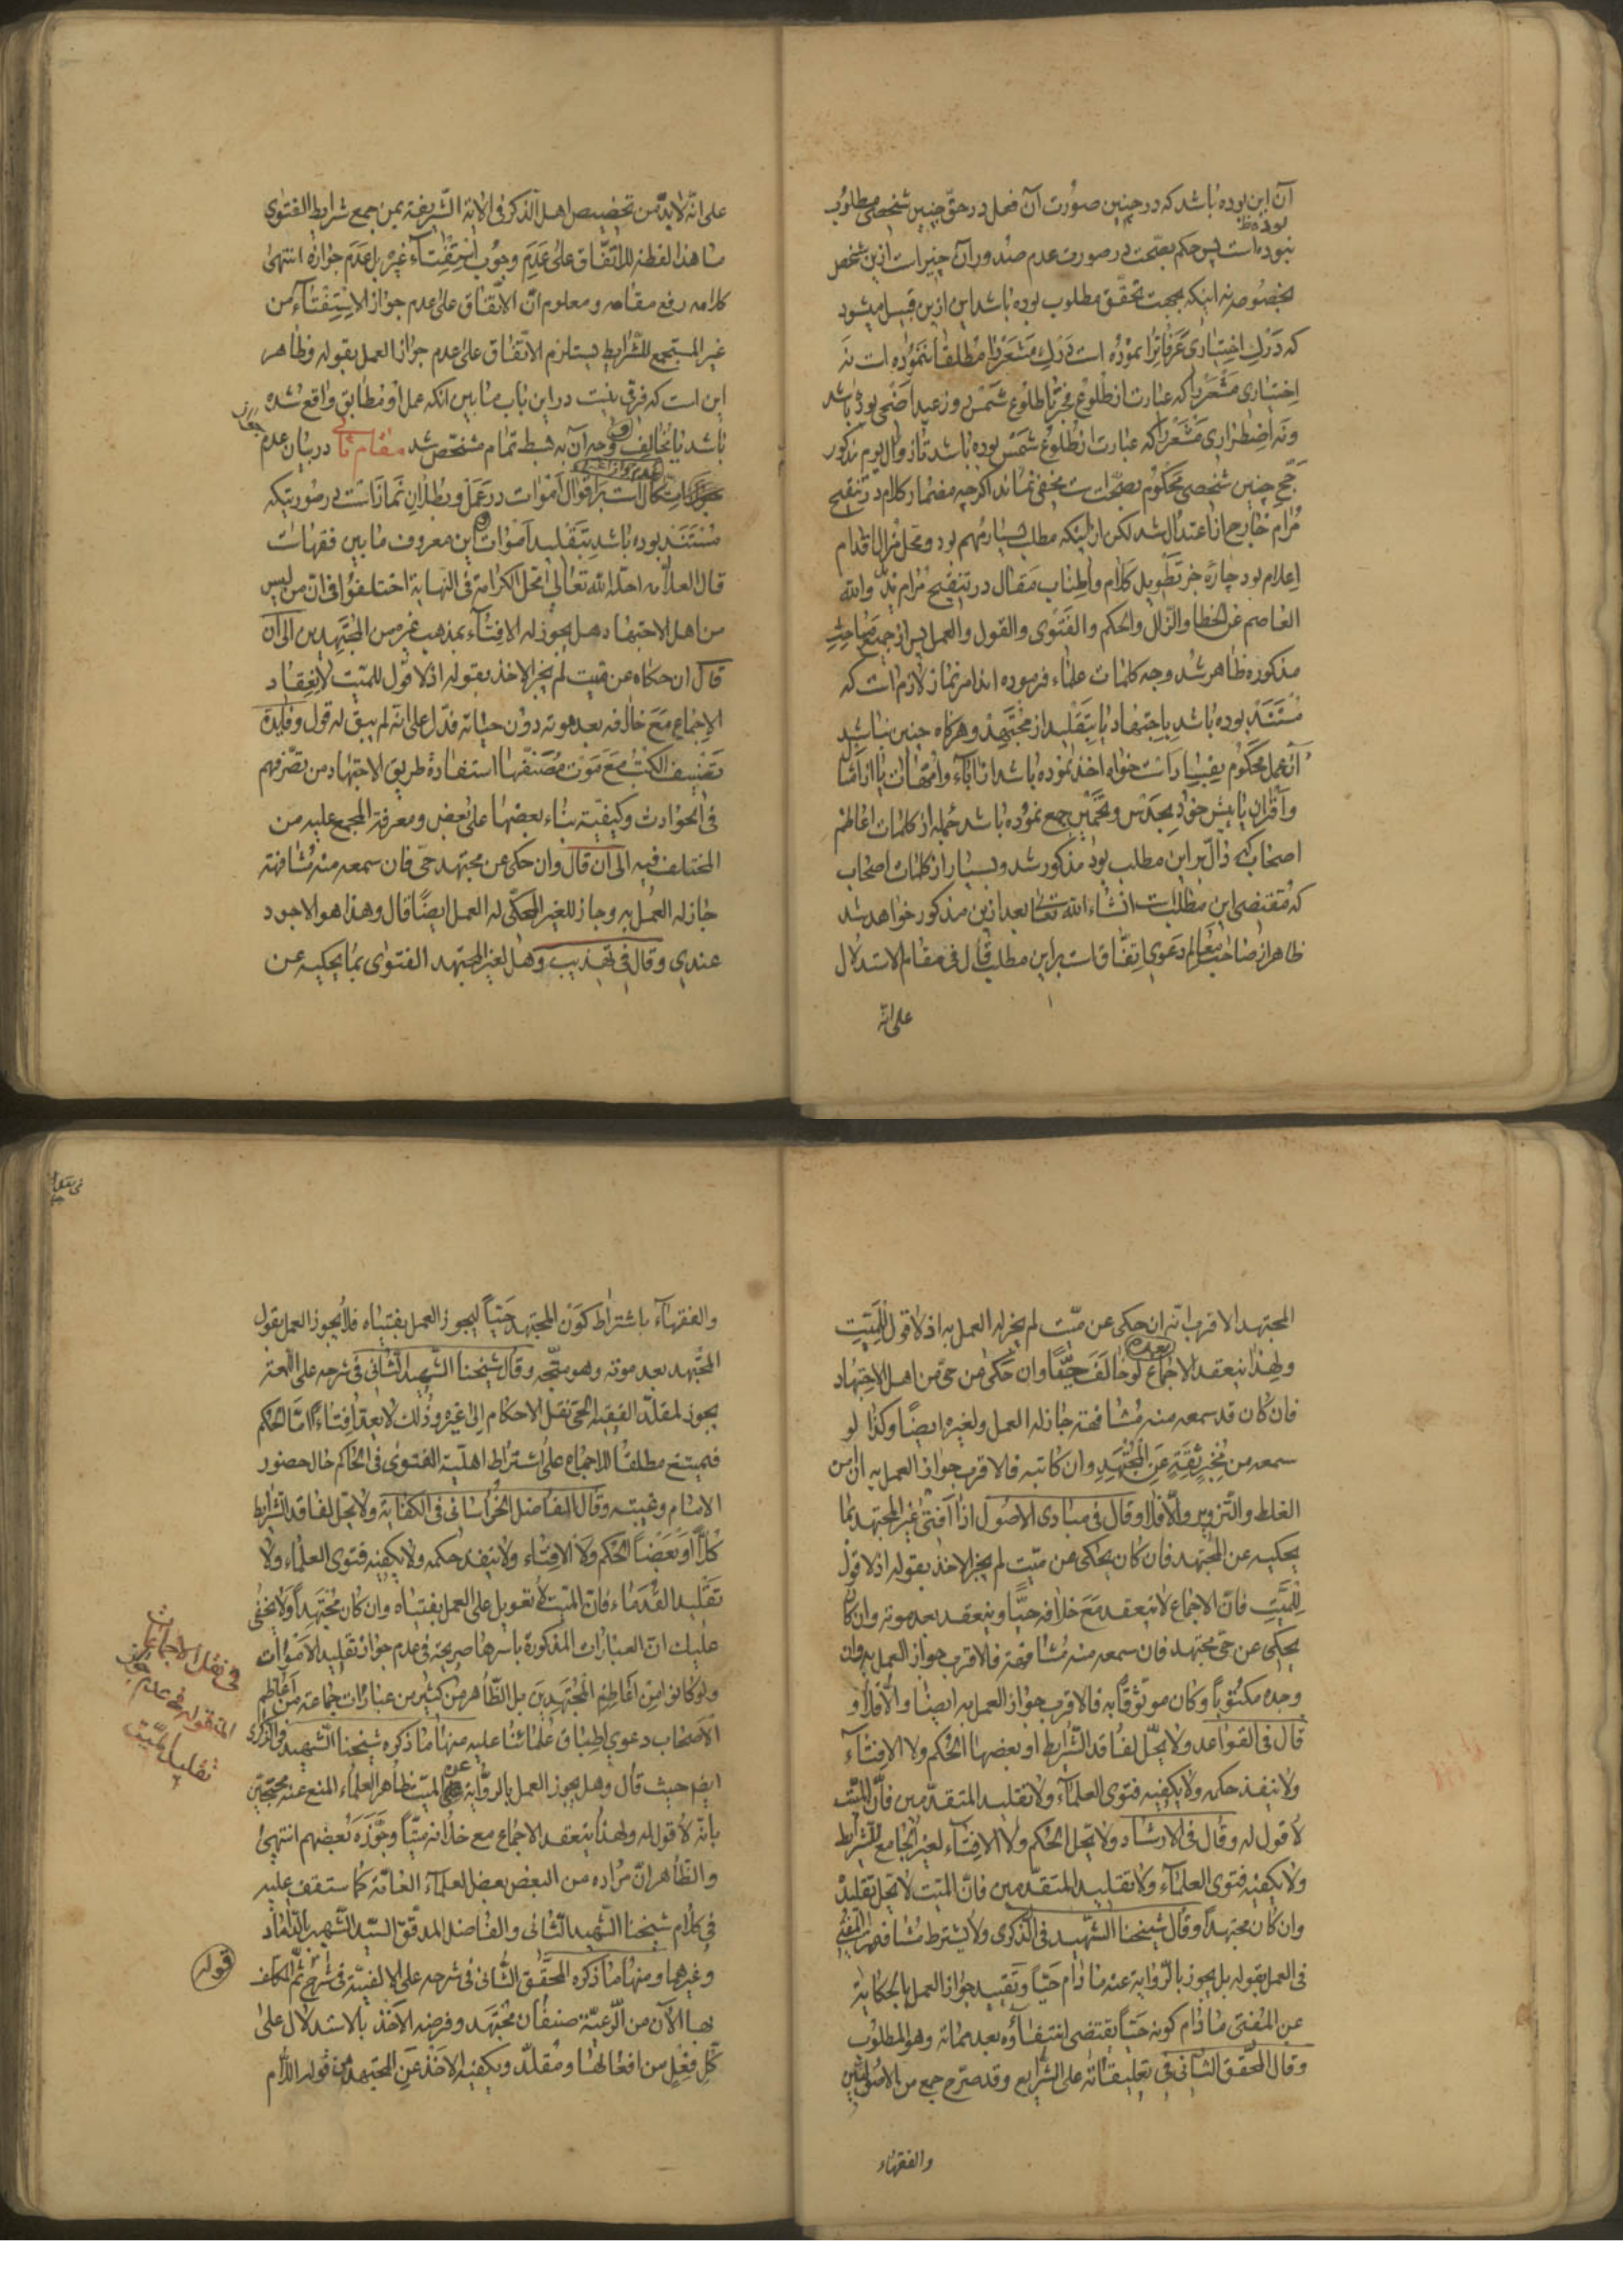 آن این بوده باشد که در چنین صورت آن فعل در حقّ چنین شخصی مطلوب
بوده
نبوده است پس حکم بصحّت در صورت عدم صدور آن چیز است ازین شخص
بخصوصه نه اینکه بجهت تحقّق مطلوب بوده باشد این ازین قبیل میشود
که درک اختیاری عرفاترا نموده است درک مشعررا مطلقا ننموده است نه
اختیاری مشعررا که عبارت از طلوع فجر تا طلوع شمس روز عید اضحی بوده باشد
ونه اضطراری مشعررا که عبارت از طلوع شمس بوده باشد تا زوال یوم مذکور
حجّ چنین شخصی محکوم بصحّت است مخفی نماند اگرچه مضمار کلام در تنقیح
مرام خارج از اعتدال شد لکن از اینکه مطلب بسیار مهم بود ومحلّ مزال اقدام
اعلام بود چارهٔ جز تطویل کلام واطناب مقال در تنقیح مرام ندید والله
العاصم عن الخطا والزّلل والحکم والفتوی والقول والعمل پس از جمیع مباحث
مذکوره ظاهر شد وجه کلمات علماء فرموده اند امر نماز لازم است که
مستند بوده باشد باجتهاد یا بتقلید از مجتهد وهرگاه چنین نباشد
آن عمل محکوم بفساد است خواه اخذ نموده باشد از آباء وامّهات یا از امثال
واقران یا پیش خود بحدس وتخمین جمع نموده باشد جمله از کلمات اعاظم
اصحاب که دالّ بر این مطلب بود مذکور شد وبسیار از کلمات اصحاب
که مقتضی این مطلب است انشاء الله تعالی بعد ازین مذکور خواهد شد
ظاهر از صاحب معالم دعوی اتفاق است بر این مطلب قال فی مقام الاستدلال
علی انّه
علی انّه لابدّ من تخصیص اهل الذکر فی الآیة الشّریفة بمن جمع شرایط الفتوی
ما هذا لفظه للاتّفاق علی عدم وجوب استفتاء غیره بل عدم جوازه انتهی
کلامه رفع مقامه ومعلوم انّ الاتّفاق علی عدم جواز الاستفتاء من
غیر المستجمع للشّرایط یستلزم الاتّفاق علی عدم جواز العمل بقوله وظاهر
این است که فرق نیست در این باب مابین آنکه عمل او مطابق واقع شده
باشد یا مخالف وجه آن به بسط تمام مشخّص شد مقام ثانی در بیان عدم
اتّکال است بر اقوال اموات در عمل وبطلان نماز است در صورتیکه
مستند بوده باشد بتقلید اموات این معروف مابین فقهاست
قال العلاّمة احلّه الله تعالی محلّ الکرامة فی النهایة اختلفوا فی انّ من لیس
من اهل الاجتهاد هل یجوز له الافتاء بمذهب غیره من المجتهدین الی ان
قال ان حکاه عن میّت لم یجز الاخذ بقوله اذ لا قول للمیّت لانعقاد
الاجماع مع خلافه بعد موته دون حیاته فدلّ علی انّه لم یبق له قول وفایدة
تصنیف الکتب مع موت مصنّفیها استفادة طریق الاجتهاد من تصرّفهم
فی الحوادث وکیفیّة بناء بعضها علی بعض ومعرفة المجمع علیه من
المختلف فیه الی ان قال وان حکی عن مجتهد حیّ فان سمعه منه مشافهة
جاز له العمل به وجاز للغیر المحکّی له العمل ایضًا قال وهذا هو الاجود
عندی وقال فی تهذیب وهل لغیر المجتهد الفتوی بما یحکیه عن
المجتهد الاقرب انّه ان حکی عن میّت لم یجز له العمل به اذ لا قول للمیّت
بعده
ولهذا ینعقد الاجماع لو خالف حیًّا وان حکی عن حیّ من اهل الاجتهاد
فان کان قد سمعه منه مشافهة جاز له العمل ولغیره ایضًا وکذا لو
سمعه من مخبر ثقة عن المجتهد وان کاتبه فالاقرب جواز العمل به ان امن
الغلط والتّزویر والاّ فلا وقال فی مبادی الاصول اذا افتی غیر المجتهد بما
یحکیه عن المجتهد فان کان یحکی عن میّت لم یجز الاخذ بقوله اذ لا قول
للمیّت فانّ الاجماع لا ینعقد مع خلافه حیًّا وینعقد بعد موته وان کان
یحکی عن حیّ مجتهد فان سمعه منه مشافهة فالاقرب جواز العمل به وان
وجده مکتوباً وکان موثوقًا به فالاقرب جواز العمل به ایضا والاّ فلا و
قال فی القواعد ولا یحلّ لفاقد الشّرایط او بعضها الحکم ولا الافتاء
ولا ینفذ حکمه ولا یکفیه فتوی العلماء ولا تقلید المتقدّمین فانّ المیّت
لا قول له وقال فی الارشاد ولا یحلّ الحکم ولا الافتاء لغیر الجامع للشّرایط
ولا یکفیه فتوی العلماء ولا تقلید المتقدّمین فانّ المیّت لا یحلّ تقلیده
وان کان مجتهداً وقال شیخنا الشّهید فی الذّکری ولا یشترط مشافهة المفتی
فی العمل بقوله بل یجوز بالرّوایة عنه مادام حیًّا وتقیید جواز العمل بالحکایة
عن المفتی مادام کونه حیّاً یقتضی انتفاؤه بعد مماته وهو المطلوب
وقال المحقّق الثانی فی تعلیقاته علی الشّرایع وقد صرّح جمع من الاصولیّین
والفقهاء
والفقهاء باشتراط کون المجتهد حیّاً لیجوز العمل بفتیاه فلا یجوز العمل بقول
المجتهد بعد موته وهو متّجه وقال شیخنا الشّهید الثّانی فی شرحه علی اللّمعة
یجوز لمقلّد الفقیه الحیّ نقل الاحکام الی غیره وذلک لا یعدّ افتاءً امّا الحکم
فیمتنع مطلقًا للاجماع علی اشتراط اهلیّة الفتوی فی الحاکم حال حضور
الامام وغیبته وقال الفاضل الخراسانی فی الکفایة ولا یحلّ لفاقد الشّرایط
کلاًّ او بعضًا الحکم ولا الافتاء ولا ینفذ حکمه ولا یکفیه فتوی العلماء ولا
تقلید القدماء فانّ المیّت لا تعویل علی العمل بفتیاه وان کان مجتهداً ولا یخفی
علیک انّ العبارات المذکورة باسرها صریحة فی عدم جواز تقلید الاموات
ولو کانوا من اعاظم المجتهدین بل الظّاهر من کثیر من عبارات جماعة من اعاظم
الاصحاب دعوی اطباق علمائنا علیه منها ما ذکره شیخنا الشّهید فی الذّکری
ایضًا حیث قال وهل یجوز العمل بالروایة عن المیّت ظاهر العلماء المنع عنه محتجّین
بانّه لا قول له ولهذا ینعقد الاجماع مع خلافه میّتًا وجوّزه بعضهم انتهی
والظّاهر انّ مراده من البعض بعض العلماء العامّة کما ستقف علیه
فی کلام شیخنا الشّهید الثّانی والفاضل المدقّق السّید الشّهیر بالدّاماد
وغیرهما ومنها ما ذکره المحقّق الثّانی فی شرحه علی الالفیّة فی شرح ثمّ المکلّف
بها الآن من الرّعیّة صنفان مجتهد وفرضه الاخذ بالاستدلال علی
کلّ فعل من افعالها ومقلّد ویکفیه الاخذ عن المجتهد من قوله اللاّم
فی نقل الاجماعات
المنقوله فی عدم جواز
تقلید المیّت
قوله